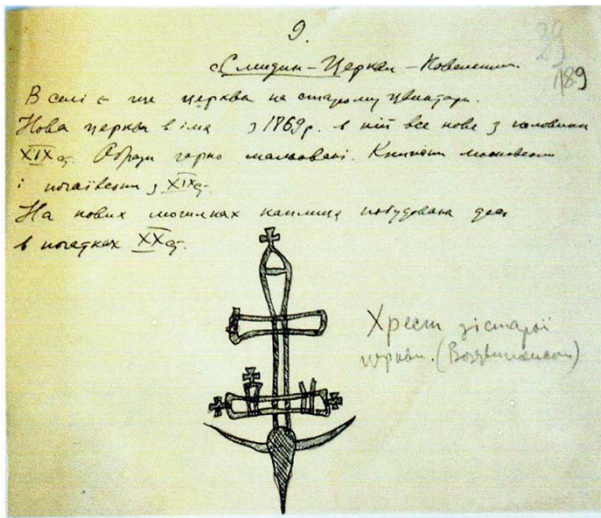 9.
39
189
с. Смидин - Церкви - Ковельщина
В селі є ще церква на старому цвинтари.
Нова церква в іма з 1869 р. в ній все нове з половини
XIX ст. Образи гарно мальовані. Книжки московські
і почаївські з XIX ст.
На нових могилках каплиця побудована десь
в початках XX ст.
Хрест зі старої
церкви. (Воздвиженської)